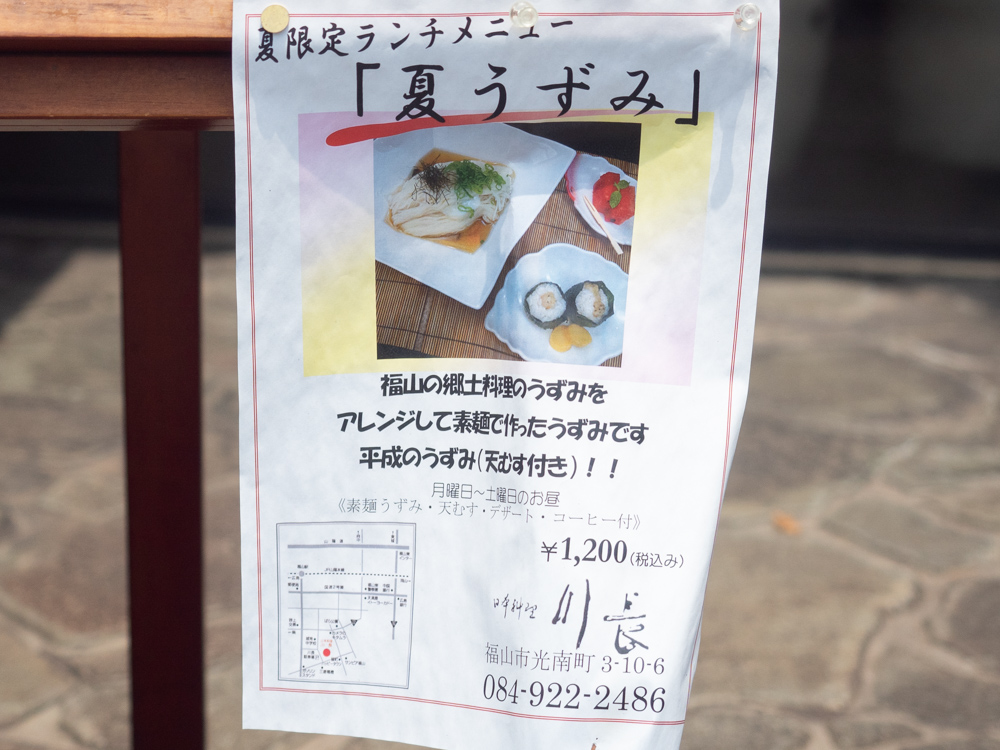 夏限定ランチメニュー
「夏うずみ」
福山の郷土料理のうずみを
アレンジして素麺で作ったうずみです
平成のうずみ(天むす付き)！！
月曜日～土曜日のお昼
《素麺うずみ・天むす・デザート・コーヒー付》
¥1,200(税込み)
日本料理 川長
福山市光南町 3-10-6
084-922-2486